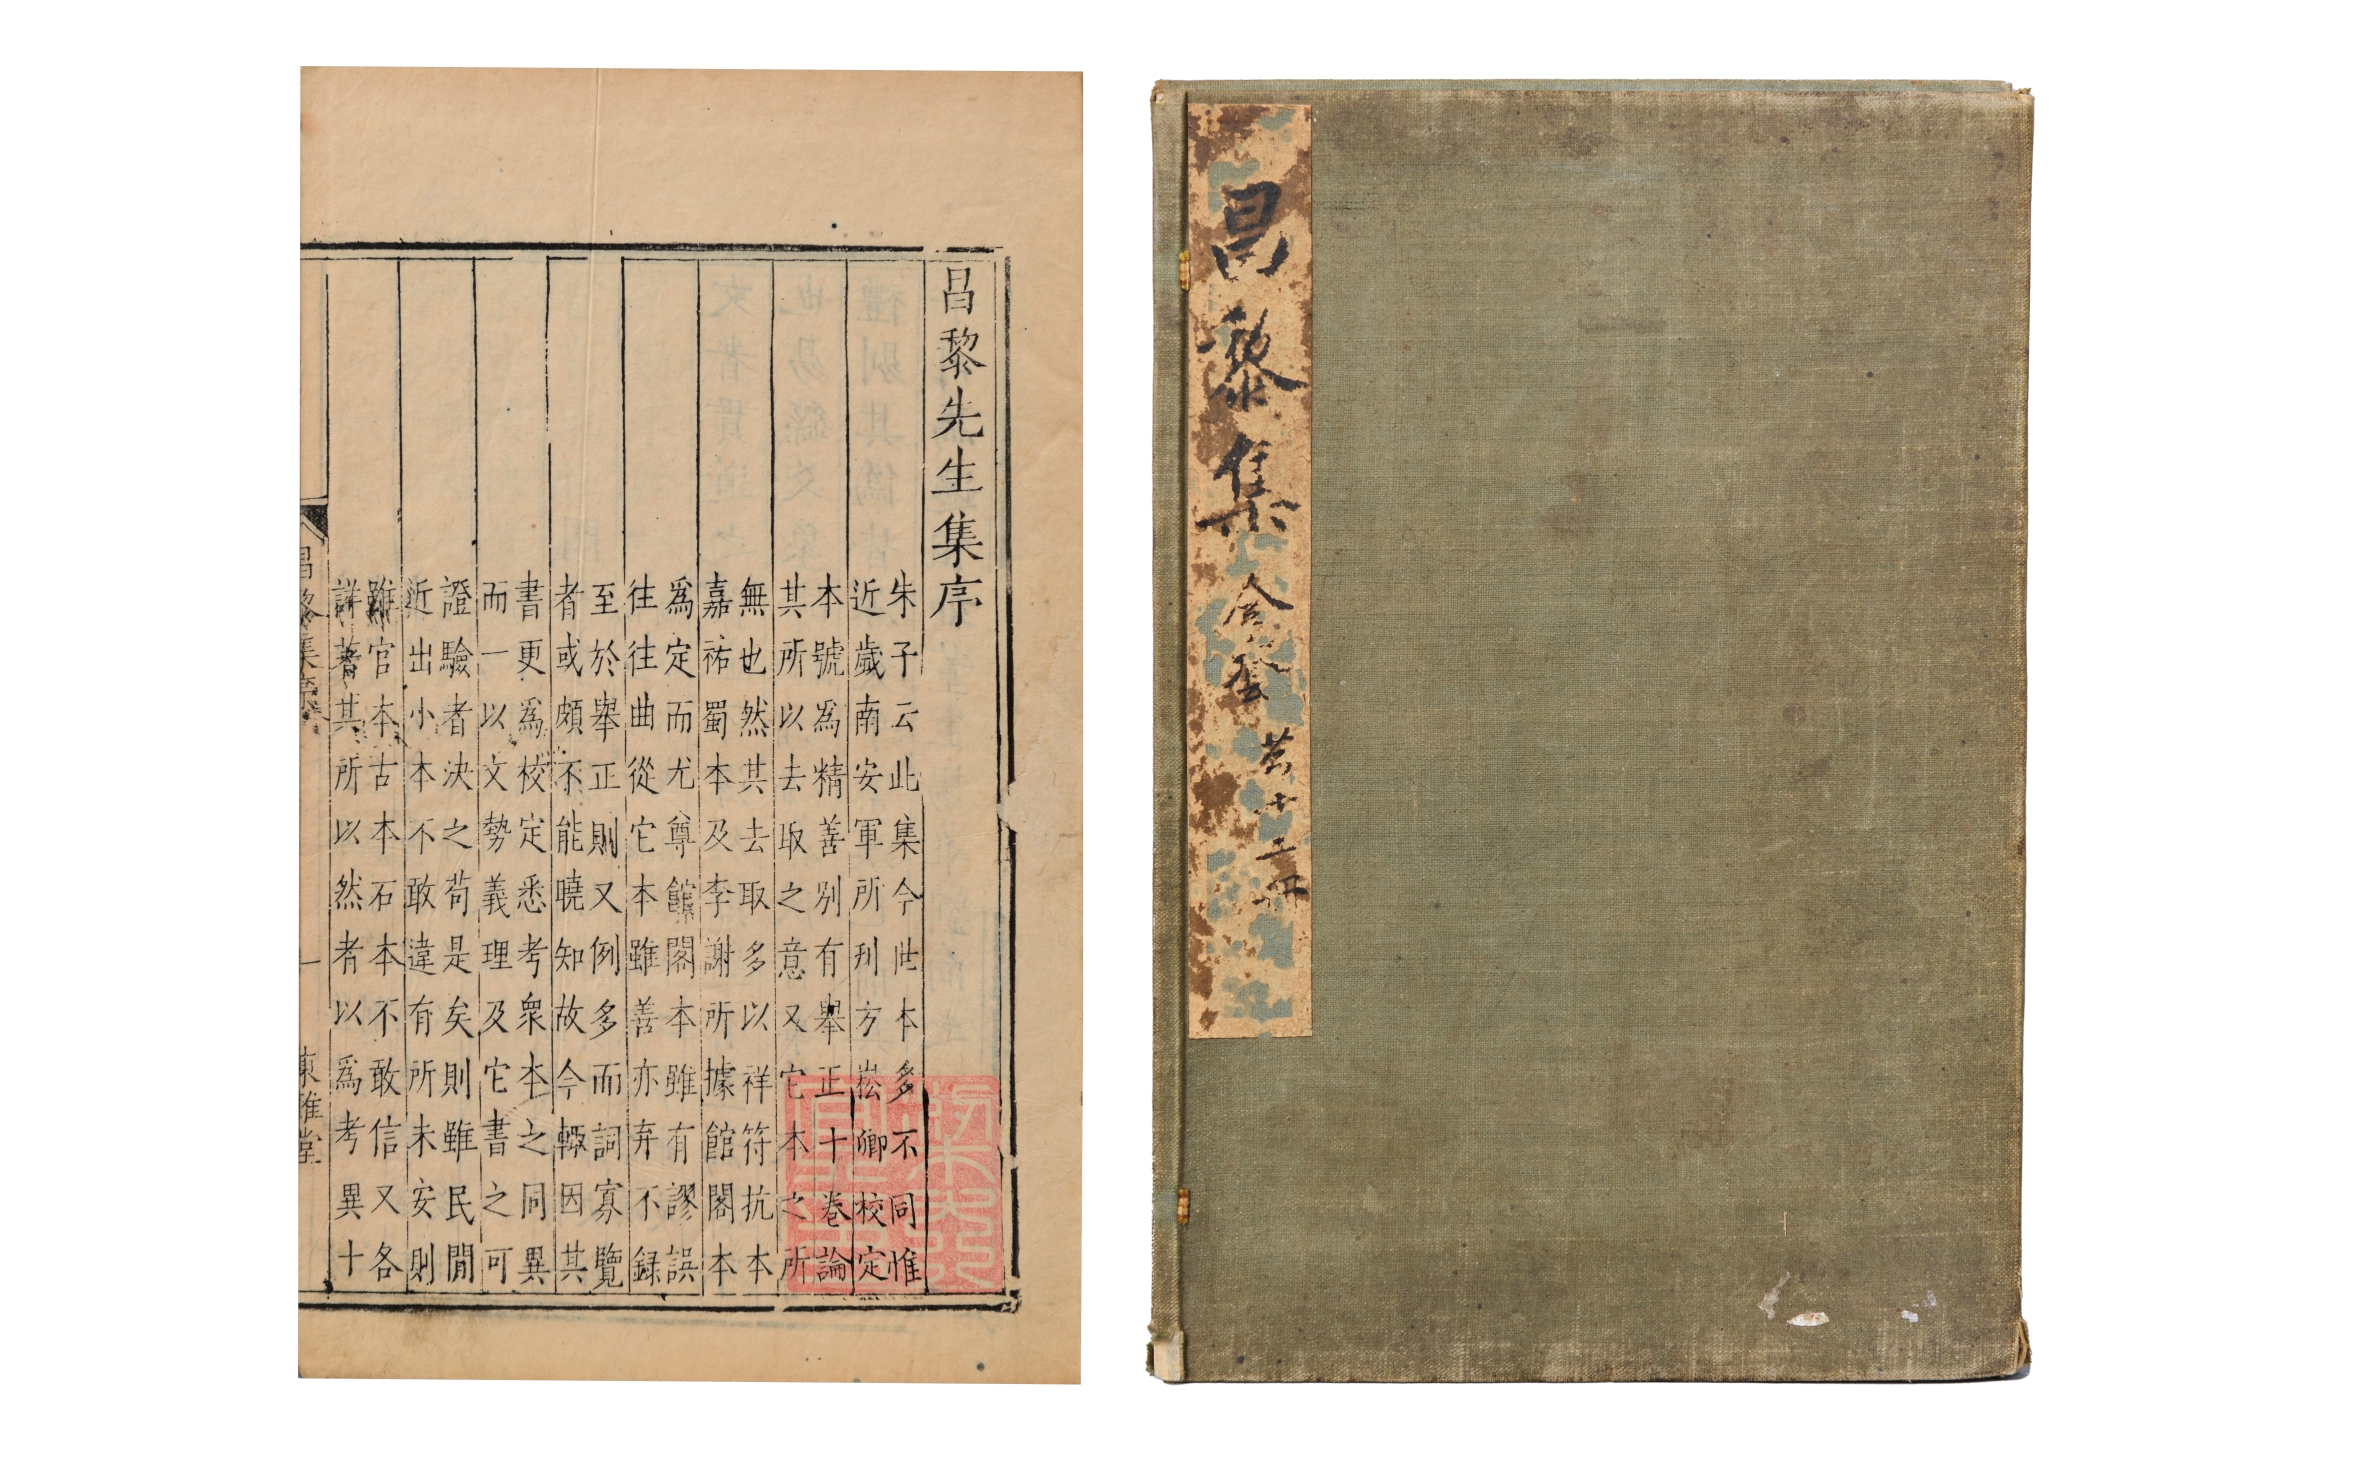 昌黎先生集序
朱子云此集今世本多不同惟
近歲南安軍所刋方崧卿校定
本號爲精善别有舉正十卷論
其所以去取之意又它本之所
無也然其去取多以祥符抗本
嘉祐蜀本及李謝所據館閣本
爲定而尤尊館閣本雖有謬誤
往往曲從它本雖善亦弃不録
至於舉正則又例多而詞寡覽
者或頗不能曉知故今輒因其
書更爲校定悉考衆本之同異
而一以文勢義理及它書之可
證驗者決之苟是矣則雖民間
近出小本不敢違有所未安則
雖官本古本石本不敢信又各
詳著其所以然者以爲考異十
昌黎集序
一
東雅堂
昌黎集
共十二册